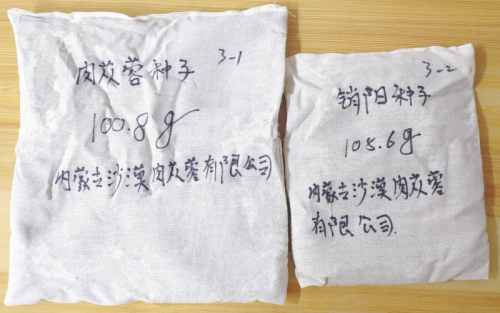 肉苁蓉种子 3-1
100.8g
内蒙古沙漠肉苁蓉有限公司
3-2
锁阳种子
105.6g
内蒙古沙漠肉苁蓉
有限公司.